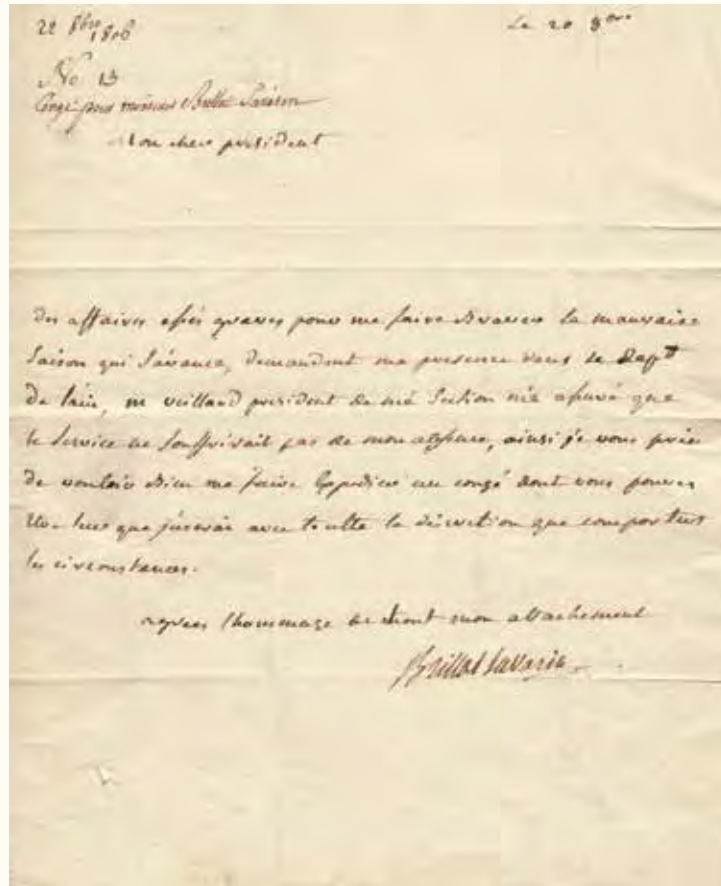 22 8bre 1806
Le 20 8bre
No 13
Congé pour monsieur Brillat Savarin
Mon cher président
Des affaires assés graves pour me faire Braver la mauvaise
Saison qui S'avance, demandent ma presence dans le Dept
De l'ain, mr vieillard president de ma Section m'a assuré que
le Service ne Souffrirait pas de mon absence, ainsi je vous prie
De vouloir Bien me faire Expedier un congé dont vous pouvez
être sur que j'userai avec toutte la discretion que comportent
les circonstances.
agreez l'hommage de tout mon attachement
Brillat Savarin